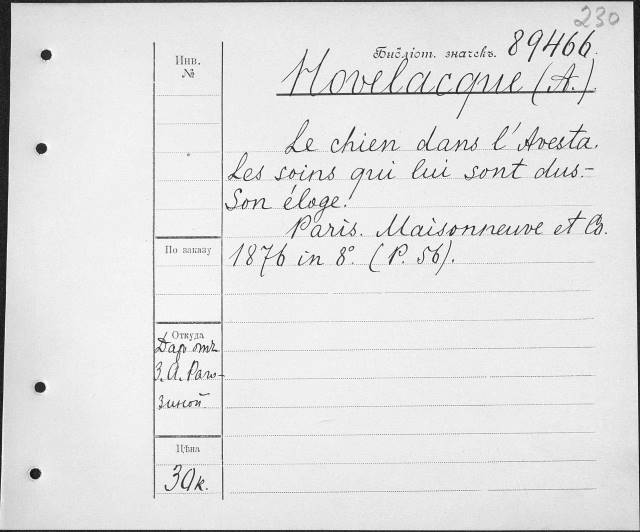 230
Инв.
№
Библіот. значекъ. 89466.
Hovelacque (A.)
Le chien dans l'Avesta.
Les soins qui lui sont dus.-
Son éloge.
Paris. Maisonneuve et Co.
1876 in 8°. (P. 56).
По заказу
Откуда
Даръ отъ
З. А. Раго-
зиной
Цѣна
30 к.